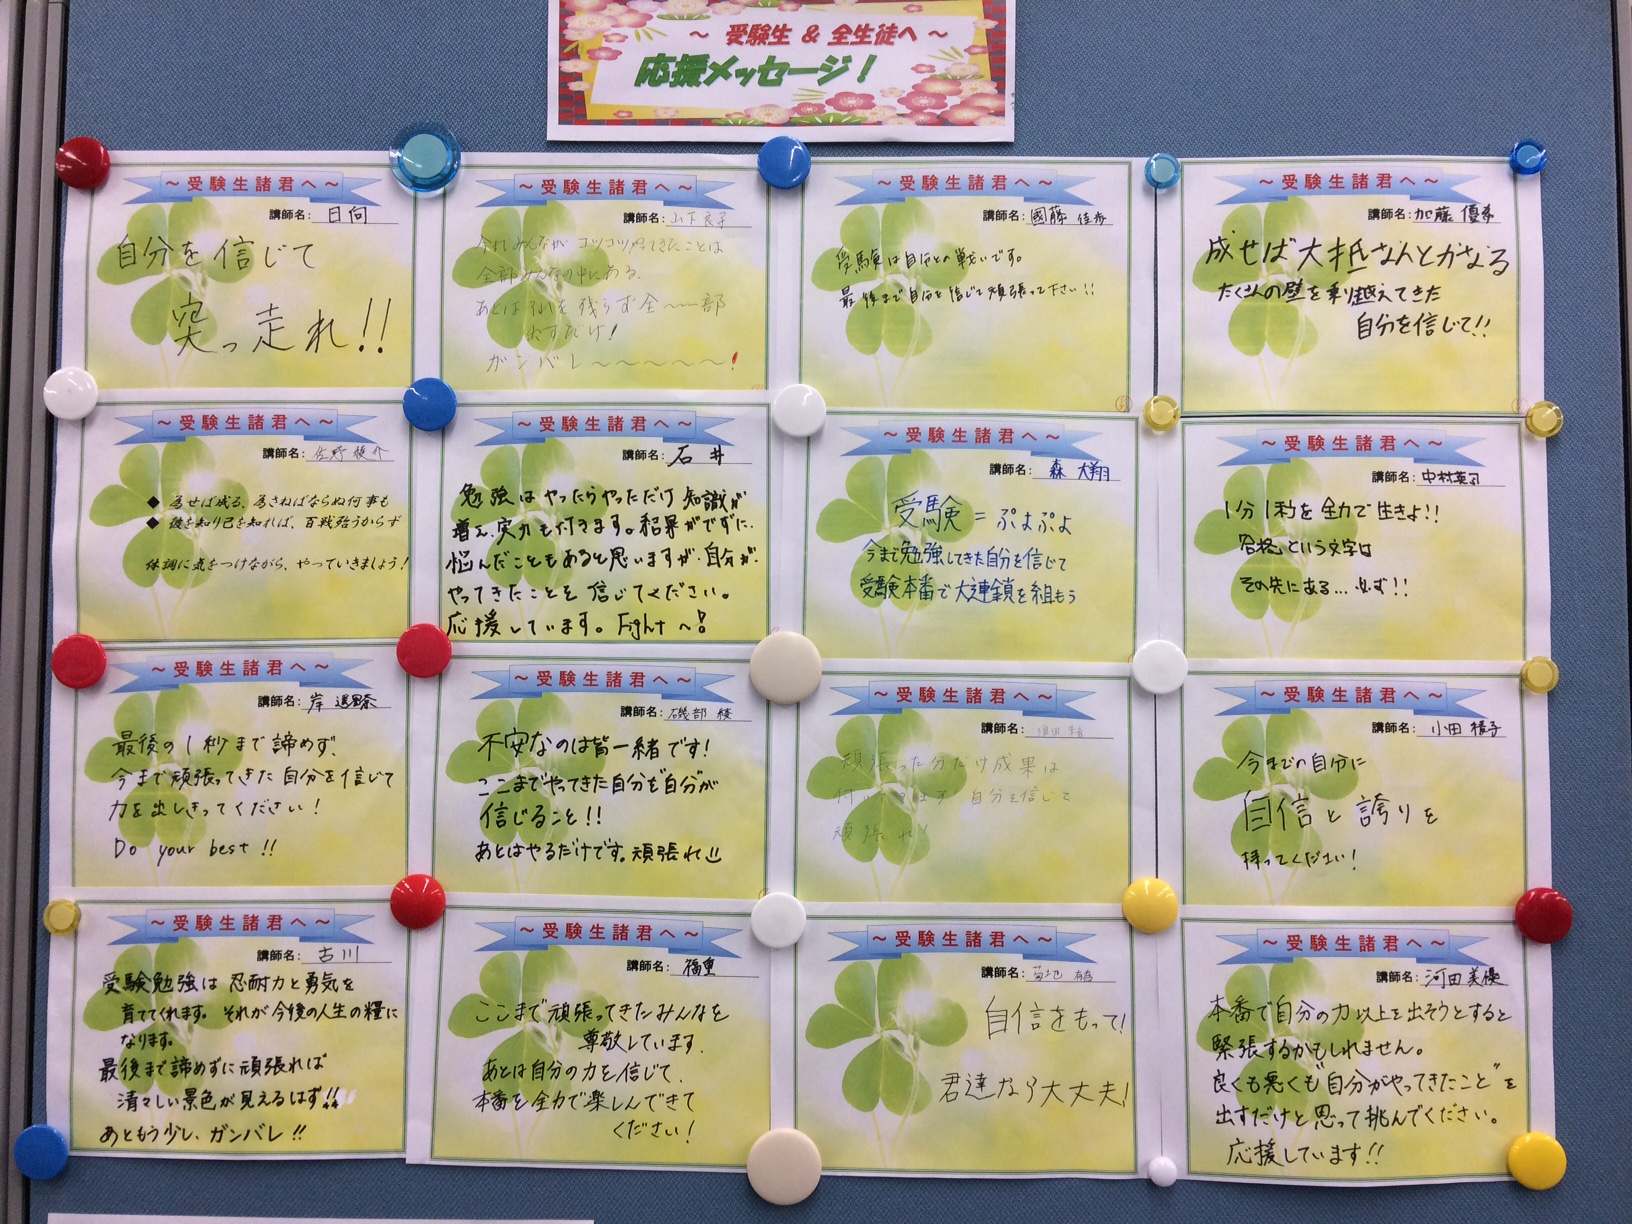 ～ 受験生 & 全生徒へ ～
応援メッセージ！
～受験生諸君へ～
講師名: 日向
自分を信じて
突っ走れ!!
～受験生諸君へ～
講師名: 山下良子
全部みんなの中にある。
あとはそれを残らず全~~部
出すだけ!
ガンバレ～～～～～～!
～受験生諸君へ～
講師名: 國藤 佳歩
受験は自分との戦いです。
最後まで自分を信じて頑張って下さい!!
～受験生諸君へ～
講師名: 加藤 優希
成せば大抵なんとかなる
たくさんの壁を乗り越えてきた
自分を信じて!!
～受験生諸君へ～
講師名: 佐野 稜介
◆ 為せば成る、為さねばならぬ何事も
◆ 彼を知り己を知れば、百戦殆うからず
体調に気をつけながら、やっていきましょう!
～受験生諸君へ～
講師名: 石井
勉強はやったらやっただけ 知識が
増え、実力も付きます。結果がでずに、
悩んだこともあると思いますが、自分が、
やってきたことを 信じてください。
応援しています。Fight ~!
～受験生諸君へ～
講師名: 森 大翔
受験 = ぷよぷよ
今まで勉強してきた自分を信じて
受験本番で大連鎖を組もう
～受験生諸君へ～
講師名: 中村英司
1分1秒を全力で生きよ!!
合格という文字は
その先にある… 必ず!!
～受験生諸君へ～
講師名: 岸
最後の1秒まで諦めず、
今まで頑張ってきた自分を信じて
力を出しきってください!
Do your best !!
～受験生諸君へ～
講師名: 磯部 綾
不安なのは皆一緒です!
ここまでやってきた自分を自分が
信じること!!
あとはやるだけです。頑張れ
～受験生諸君へ～
講師名:
頑張った分だけ成果は
付いてきます! 自分を信じて
頑張れ!
～受験生諸君へ～
講師名: 小田 様子
今までの自分に
自信と誇りを
持ってください!
～受験生諸君へ～
講師名: 古川
受験勉強は 忍耐力と勇気を
育ててくれます。それが今後の人生の糧に
なります。
最後まで諦めずに頑張れば
清々しい景色が見えるはず!!
あともう少し、ガンバレ!!
～受験生諸君へ～
講師名: 福重
ここまで頑張ってきたみんなを
尊敬しています。
あとは自分の力を信じて、
本番を全力で楽しんできて
ください!
～受験生諸君へ～
講師名: 菊地
自信をもって!
君達なら大丈夫!
～受験生諸君へ～
講師名: 河田 美優
本番で自分の力以上を出そうとすると
緊張するかもしれません。
良くも悪くも"自分がやってきたこと"を
出すだけと思って挑んでください。
応援しています!!